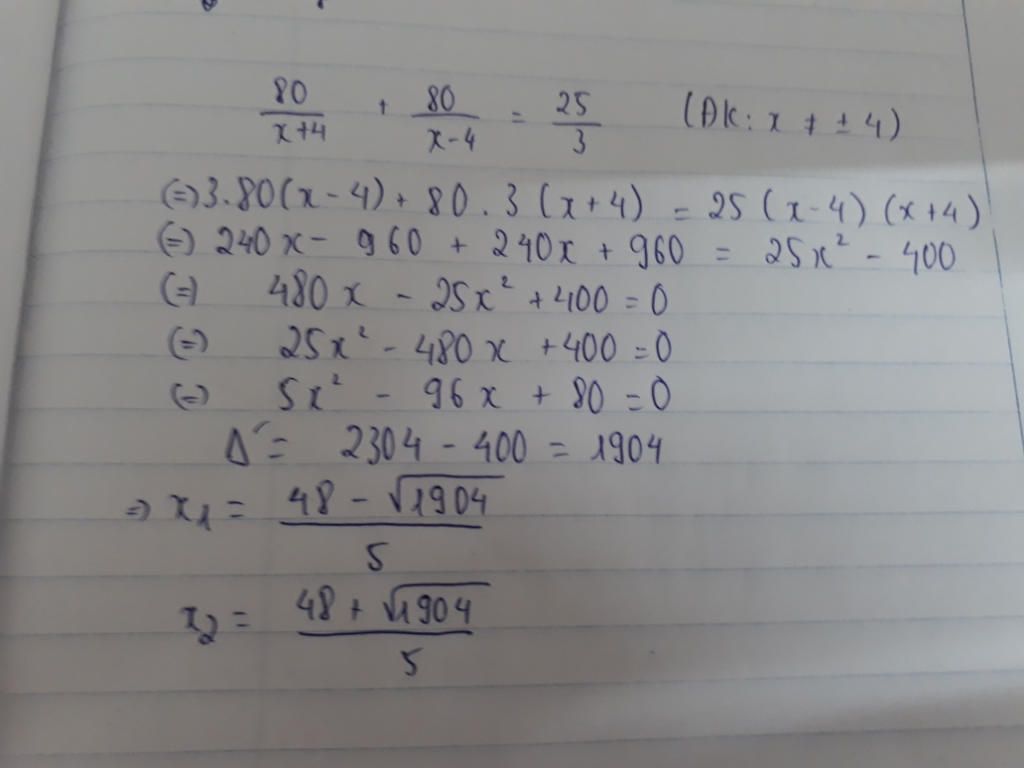 80/(x+4) + 80/(x-4) = 25/3 (ĐK: x ≠ ± 4)
(=) 3.80(x-4) + 80.3(x+4) = 25(x-4)(x+4)
(=) 240x - 960 + 240x + 960 = 25x² - 400
(=) 480x - 25x² + 400 = 0
(=) 25x² - 480x + 400 = 0
(=) 5x² - 96x + 80 = 0
Δ' = 2304 - 400 = 1904
=> x₁ = (48 - √1904)/5
x₂ = (48 + √1904)/5